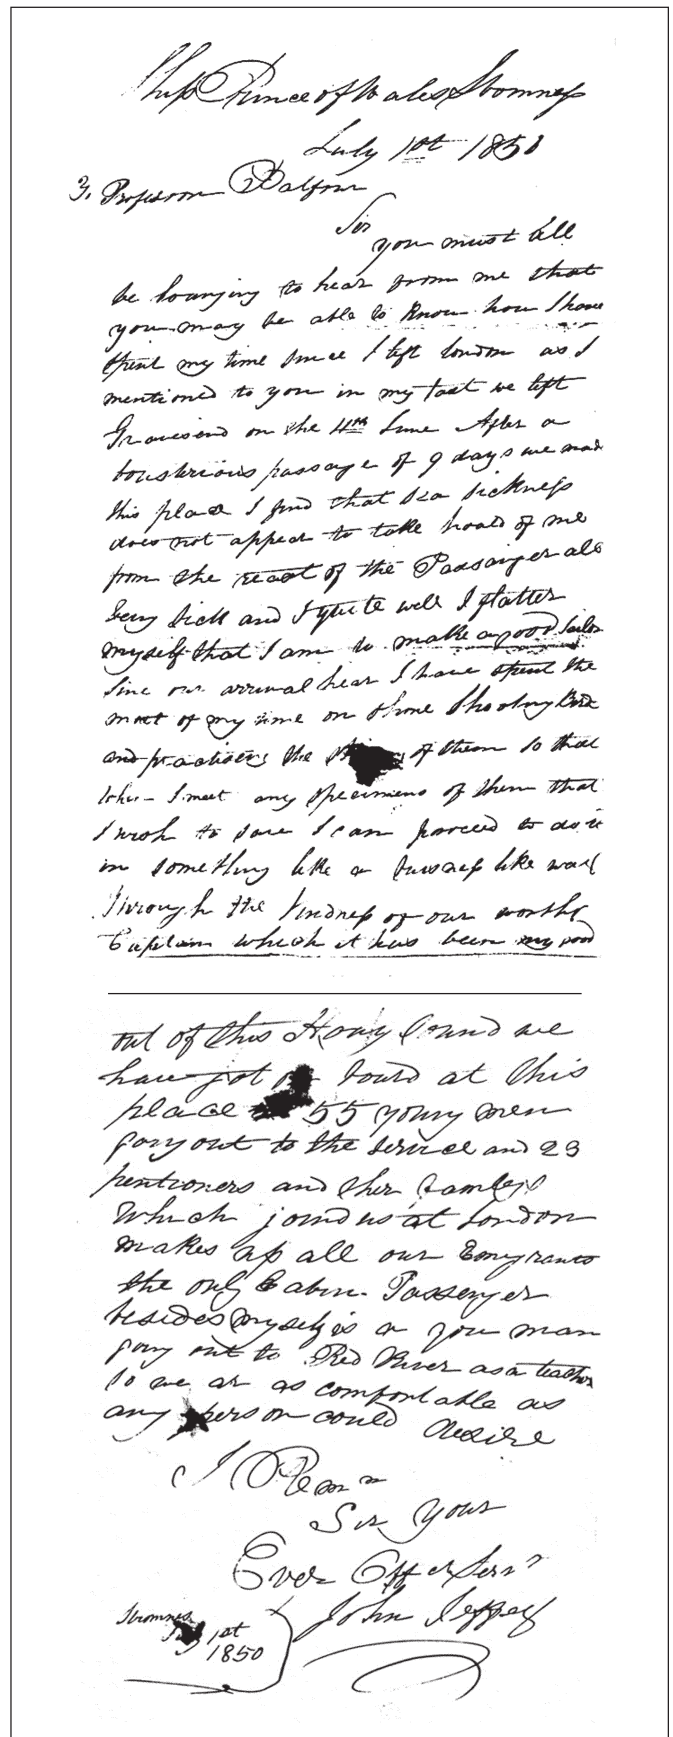 Ship Prince of Wales Stromness
July 1st 1850
To Professor Balfour
Sir
you must all
be lounging to hear from me that
you may be able to know how I have
spent my time since I left London as I
mentioned to you in my last we left
Gravesend on the 4th June After a
bousterious passage of 9 days we mad
this place I find that sea sickness
does not appear to take hoald of me
from the reast of the Passanger all
being sick and I quite well I flatter
myself that I am to make a good sailor
Sinc our arrival hear I have spent the
most of my time on shore Shooting Bird
and practising the of them so that
when I meet any specimens of them that
I wish to save I can parceed to do it
in something like a buisness like way
through the kindness of our worthy
Captain which it has been my good
out of this Story Sound we
have got on bourd at this
place 55 young men
going out to the service and 23
pentioners and ther familys
Which joind us at London
makes up all our Emigrants
the only Cabin Passenger
besides myself is a you man
going out to Red River as a teacher
so we ar as comfortable as
any person could desire
I Remn
Sir your
Ever Obt Servt
John Jeffrey
Stromness
July 1st
1850